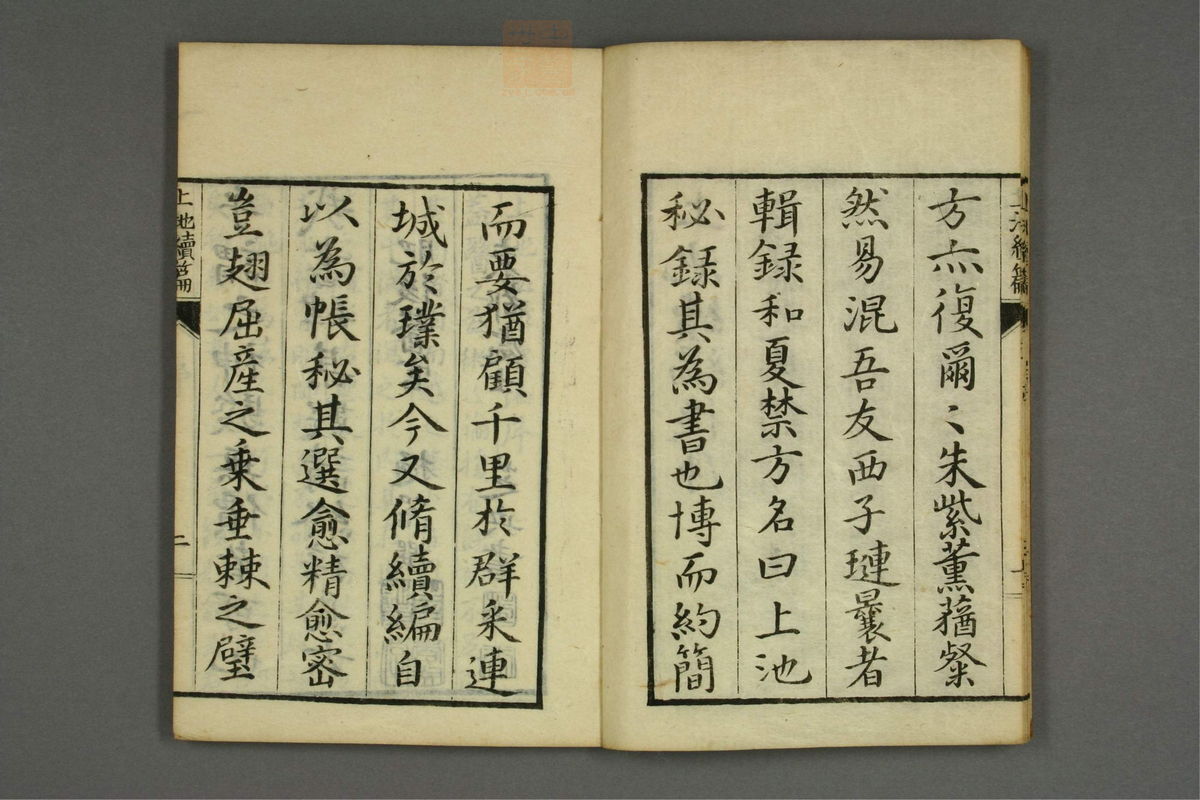 方亦復爾〻朱紫薰蕕粲
然易混吾友西子璉曩者
輯録和夏禁方名曰上池
秘録其為書也博而約簡
而要猶顧千里於群采連
城於璞矣今又脩續編自
以為帳秘其選愈精愈密
豈翅屈產之乗垂棘之璧
上池續編
二